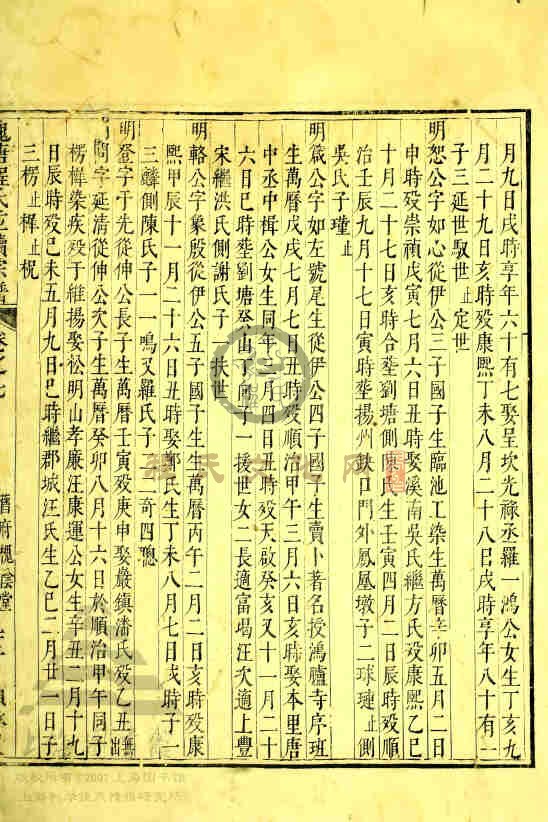 月九日戌時享年六十有七娶呈坎光祿丞羅一鴻公女生丁亥九
月二十九日亥時歿康熙丁未八月二十八日戌時享年八十有一
子三延世馭世止定世
明恕公字如心從伊公三子國子生臨池工染生萬曆辛卯五月二日
申時歿崇禎戊寅七月六日丑時娶溪南吳氏繼方氏歿康熙乙巳
十月二十七日亥時合塟劉塘側康氏生壬寅四月二日辰時歿順
治壬辰九月十七日寅時塟揚州鈌口門外鳳凰墩子二球璉止側
吳氏子瑾止
明箴公字如左號尾生從伊公四子國子生賣卜著名授鴻臚寺序班
生萬曆戊戌七月七日丑時歿順治甲午三月六日亥時娶本里唐
中丞中楫公女生同年三月四日丑時歿天啟癸亥又十一月二十
六日巳時塟劉塘癸山丁向子一援世女二長適富堨汪次適上豐
宋繼洪氏側謝氏子一扶世
明輅公字象殷從伊公五子國子生生萬曆丙午二月二日亥時歿康
熙甲辰十一月二十六日丑時娶鄭氏生丁未八月七日戌時子一
三麟側陳氏子一一鳴又羅氏子二三奇四聰
明登字于先從伸公長子生萬曆壬寅歿庚申娶巖鎮潘氏歿乙丑無出
字延清從伸公次子生萬曆癸卯八月十六日於順治甲午同子
楞樨染疾歿于維揚娶松明山孝廉汪康運公女生辛丑二月十九
日辰時歿巳未五月九日巳時繼郡城汪氏生乙巳二月廿一日子
三楞止樨止柷
槐塘程氏
卷之七
槐蔭堂
版权所有©2007上海图书馆